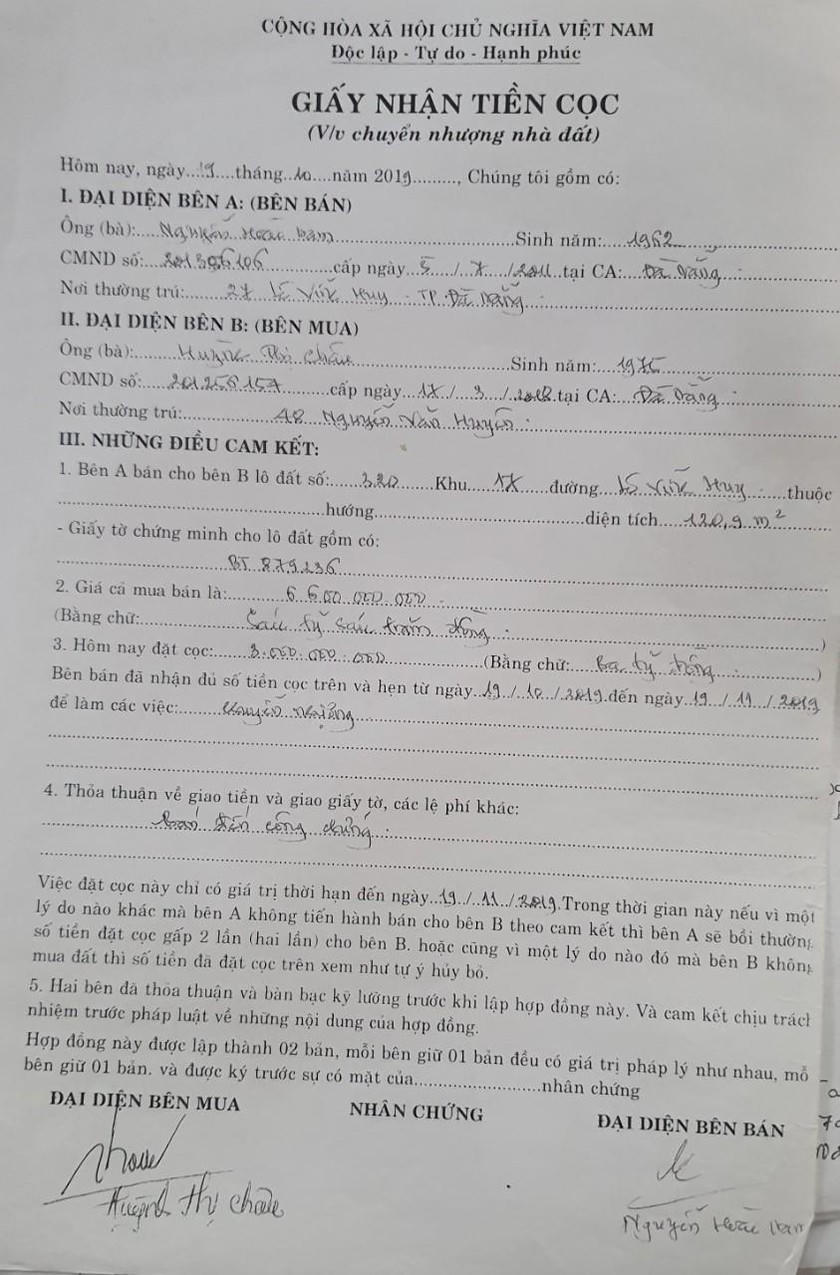 CỘNG HÒA XÃ HỘI CHỦ NGHĨA VIỆT NAM
Độc lập - Tự do - Hạnh phúc
GIẤY NHẬN TIỀN CỌC
(V/v chuyển nhượng nhà đất)
Hôm nay, ngày...19....tháng..10....năm 2019.........., Chúng tôi gồm có:
I. ĐẠI DIỆN BÊN A: (BÊN BÁN)
Ông (bà):....Nguyễn Hoài Nam..............Sinh năm:....1962
CMND số:...201306106..............cấp ngày..5../..7.../2011..tại CA:....Đà Nẵng
Nơi thường trú:.......27 Lê Vĩnh Huy - TP. Đà Nẵng
II. ĐẠI DIỆN BÊN B: (BÊN MUA)
Ông (bà):.......Huỳnh Thị Châu..............Sinh năm:...1975
CMND số:....201256157.........cấp ngày...17./..3.../.2018.tại CA:...Đà Nẵng
Nơi thường trú:..............48 Nguyễn Văn Huyên
III. NHỮNG ĐIỀU CAM KẾT:
1. Bên A bán cho bên B lô đất số:......320.......Khu....17......đường...Lê Vĩnh Huy.......thuộc
..............hướng..............diện tích.....120,9 m²
- Giấy tờ chứng minh cho lô đất gồm có:
BT 879236
2. Giá cả mua bán là:..........6.600.000.000
(Bằng chữ:..............Sáu tỷ sáu trăm đồng..............)
3. Hôm nay đặt cọc:......3.000.000.000..............(Bằng chữ:.....Ba tỷ đồng..............)
Bên bán đã nhận đủ số tiền cọc trên và hẹn từ ngày.19../.10../.2019.đến ngày.19.../.11../.2019
để làm các việc:.......chuyển nhượng
4. Thỏa thuận về giao tiền và giao giấy tờ, các lệ phí khác:
công chứng
Việc đặt cọc này chỉ có giá trị thời hạn đến ngày...19../..11../.2019.Trong thời gian này nếu vì một
lý do nào khác mà bên A không tiến hành bán cho bên B theo cam kết thì bên A sẽ bồi thường
số tiền đặt cọc gấp 2 lần (hai lần) cho bên B. hoặc cũng vì một lý do nào đó mà bên B không
mua đất thì số tiền đã đặt cọc trên xem như tự ý hủy bỏ.
5. Hai bên đã thỏa thuận và bàn bạc kỹ lưỡng trước khi lập hợp đồng này. Và cam kết chịu trách
nhiệm trước pháp luật về những nội dung của hợp đồng.
Hợp đồng này được lập thành 02 bản, mỗi bên giữ 01 bản đều có giá trị pháp lý như nhau, mỗ
bên giữ 01 bản. và được ký trước sự có mặt của........................nhân chứng
ĐẠI DIỆN BÊN MUA NHÂN CHỨNG ĐẠI DIỆN BÊN BÁN
Huỳnh Thị Châu Nguyễn Hoài Nam